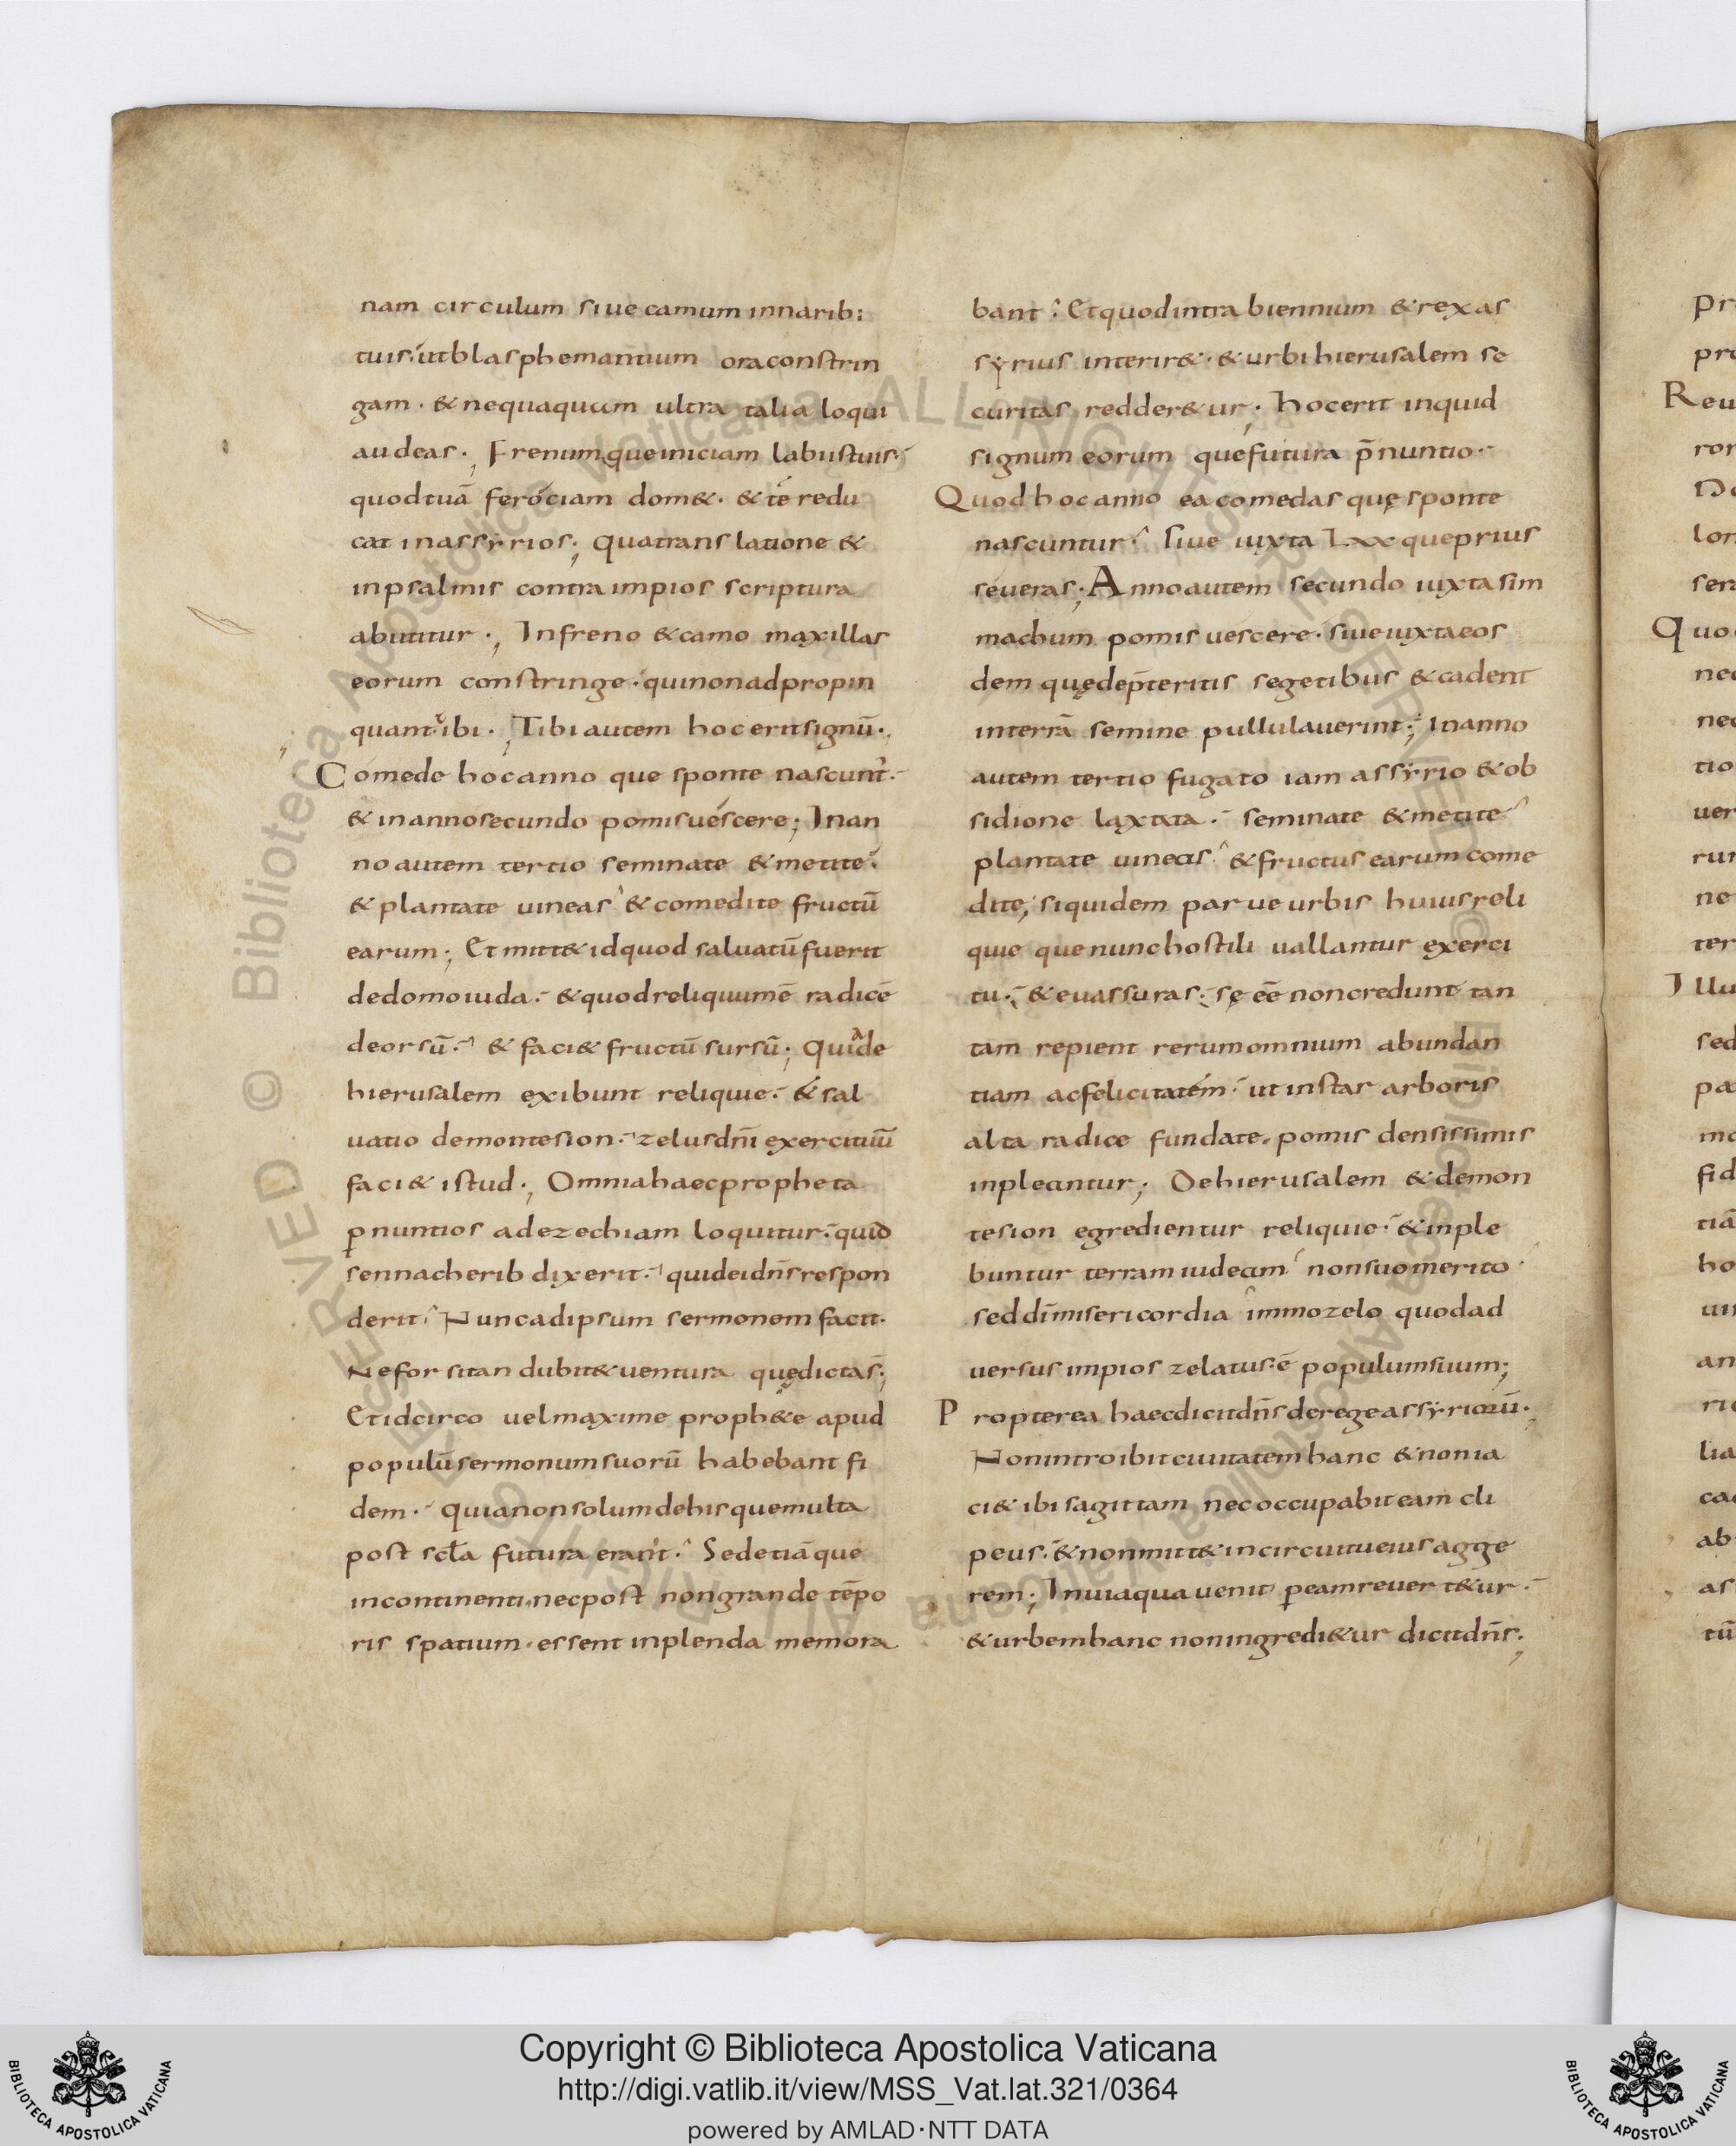 nam circulum siue camum innarib;
tuis. ut blasphemantium ora constrin
gam. & nequaquam ultra talia loqui
audeas., Frenum que iniciam labiis tuis.
quod tuā ferociam dom&. & te redu
cat in assyrios; qua translatione &
in psalmis contra impios scriptura
abutitur., In freno & camo maxillas
eorum constringe. qui non ad propin
quant tibi., Tibi autem hoc erit signū.,
Comede hoc anno que sponte nascunt.
& in anno secundo pomis uescere; In an
no autem tertio seminate & metite.
& plantate uineas & comedite fructū
earum; Et mitt& id quod saluatū fuerit
de domo iuda. & quod reliquum ē radicē
deorsū. & faci& fructū sursū; Quia de
hierusalem exibunt reliquie. & sal
uatio de monte sion. zelus dñi exercituū
faci& istud., Omnia haec propheta
p nuntios ad ezechiam loquitur. quid
sennacherib dixerit. quid ei dñs respon
derit. Nunc ad ipsum sermonem facit.
Ne forsitan dubit& uentura quę dicta s̄;
Et idcirco uel maxime proph&e apud
populū sermonum suorū habebant fi
dem. quia non solum de his que multa
post scła futura erant. Sed etiā que
in continenti. nec post non grande tēpo
ris spatium. essent inplenda memora
bant. Et quod intra biennium & rex as
syrius interir&. & urbi hierusalem se
curitas redder&ur; Hoc erit inquid
signum eorum que futura p̄nuntio.
Quod hoc anno ea comedas quę sponte
nascuntur. siue iuxta Lxx que prius
seueras; Anno autem secundo iuxta sim
machum pomis uescere. siue iuxta eos
dem quę de p̄teritis segetibus & cadent
in terrā semine pullulauerint; In anno
autem tertio fugato iam assyrio & ob
sidione laxata. seminate & metite
plantate uineas. & fructus earum come
dite, siquidem parue urbis huius reli
quie que nunc hostili uallantur exerci
tu. & euassuras. sę eē non credunt tan
tam repient rerum omnium abundan
tiam ac felicitatem. ut instar arboris
alta radice fundate. pomis densissimis
inpleantur; De hierusalem & de mon
te sion egredientur reliquie. & inple
buntur terram iudeam non suo merito
sed dī misericordia immo zelo quo dad
uersus impios zelatus ē populum suum;
Propterea haec dicit dñs de rege assyriorū.,
Non introibit ciuitatem hanc & non ia
ci& ibi sagittam nec occupabit eam cli
peus. & non mitt& in circuitu eius agge
rem; In uia qua uenit p eam reuert&ur.
& urbem hanc non ingredi&ur dicit dñs.,
Copyright © Biblioteca Apostolica Vaticana
http://digi.vatlib.it/view/MSS_Vat.lat.321/0364
powered by AMLAD·NTT DATA